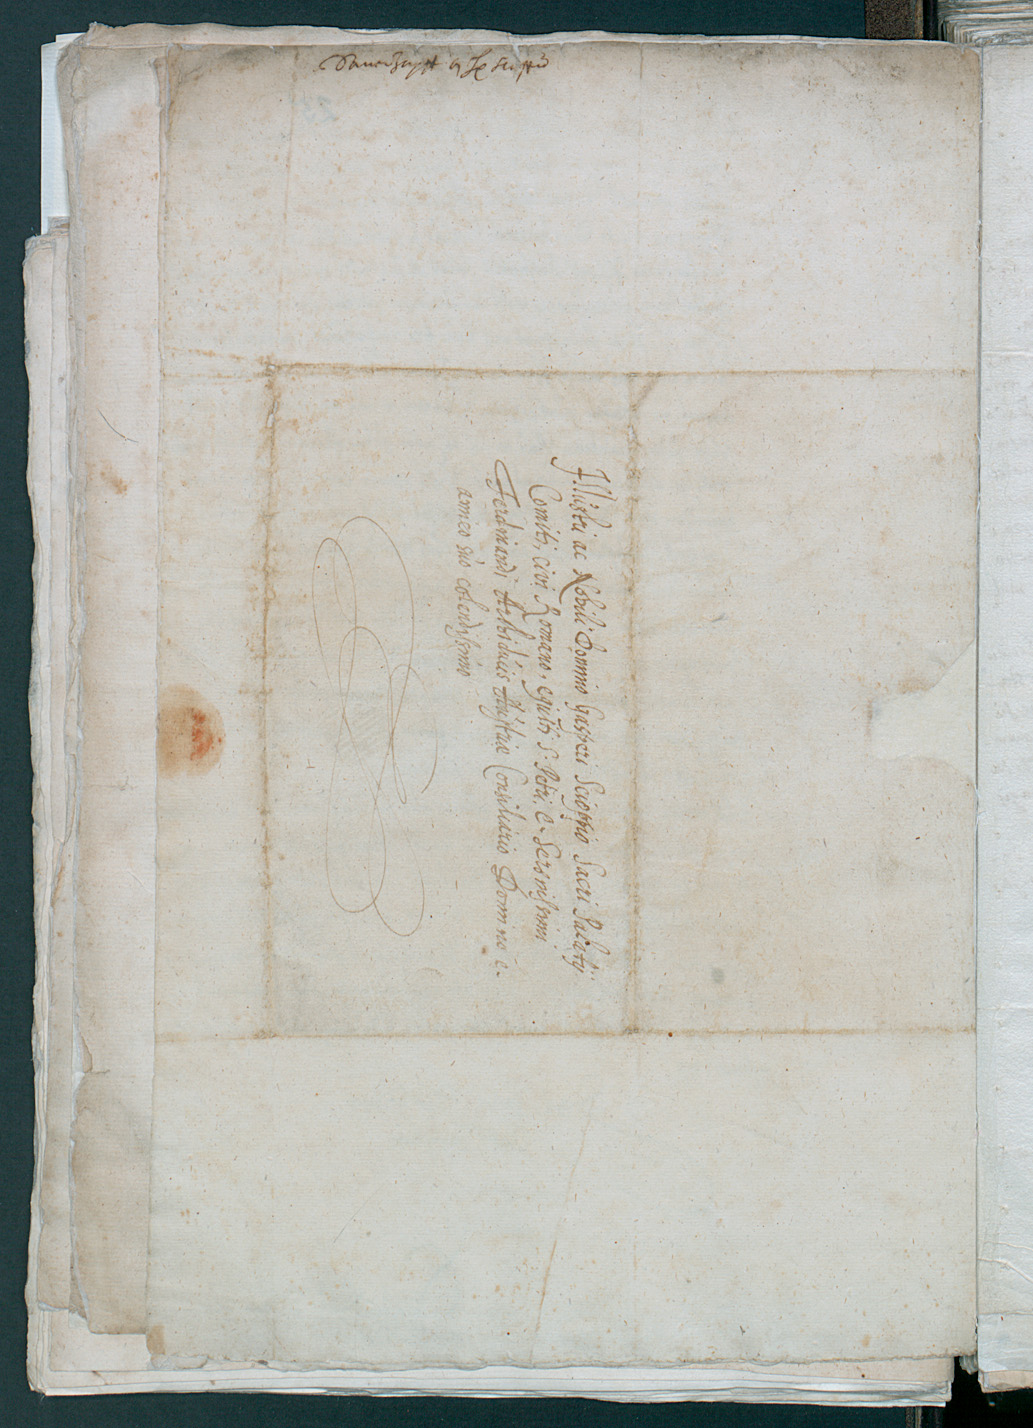 Illustri ac Nobili Domino Gasperi Scioppio Sacri Palatij
Comiti, civi Romano, equiti S. Petri, & Serenissimi
Ferdinandi Archiducis Austriae Consiliario Domino &
amico suo colendissimo